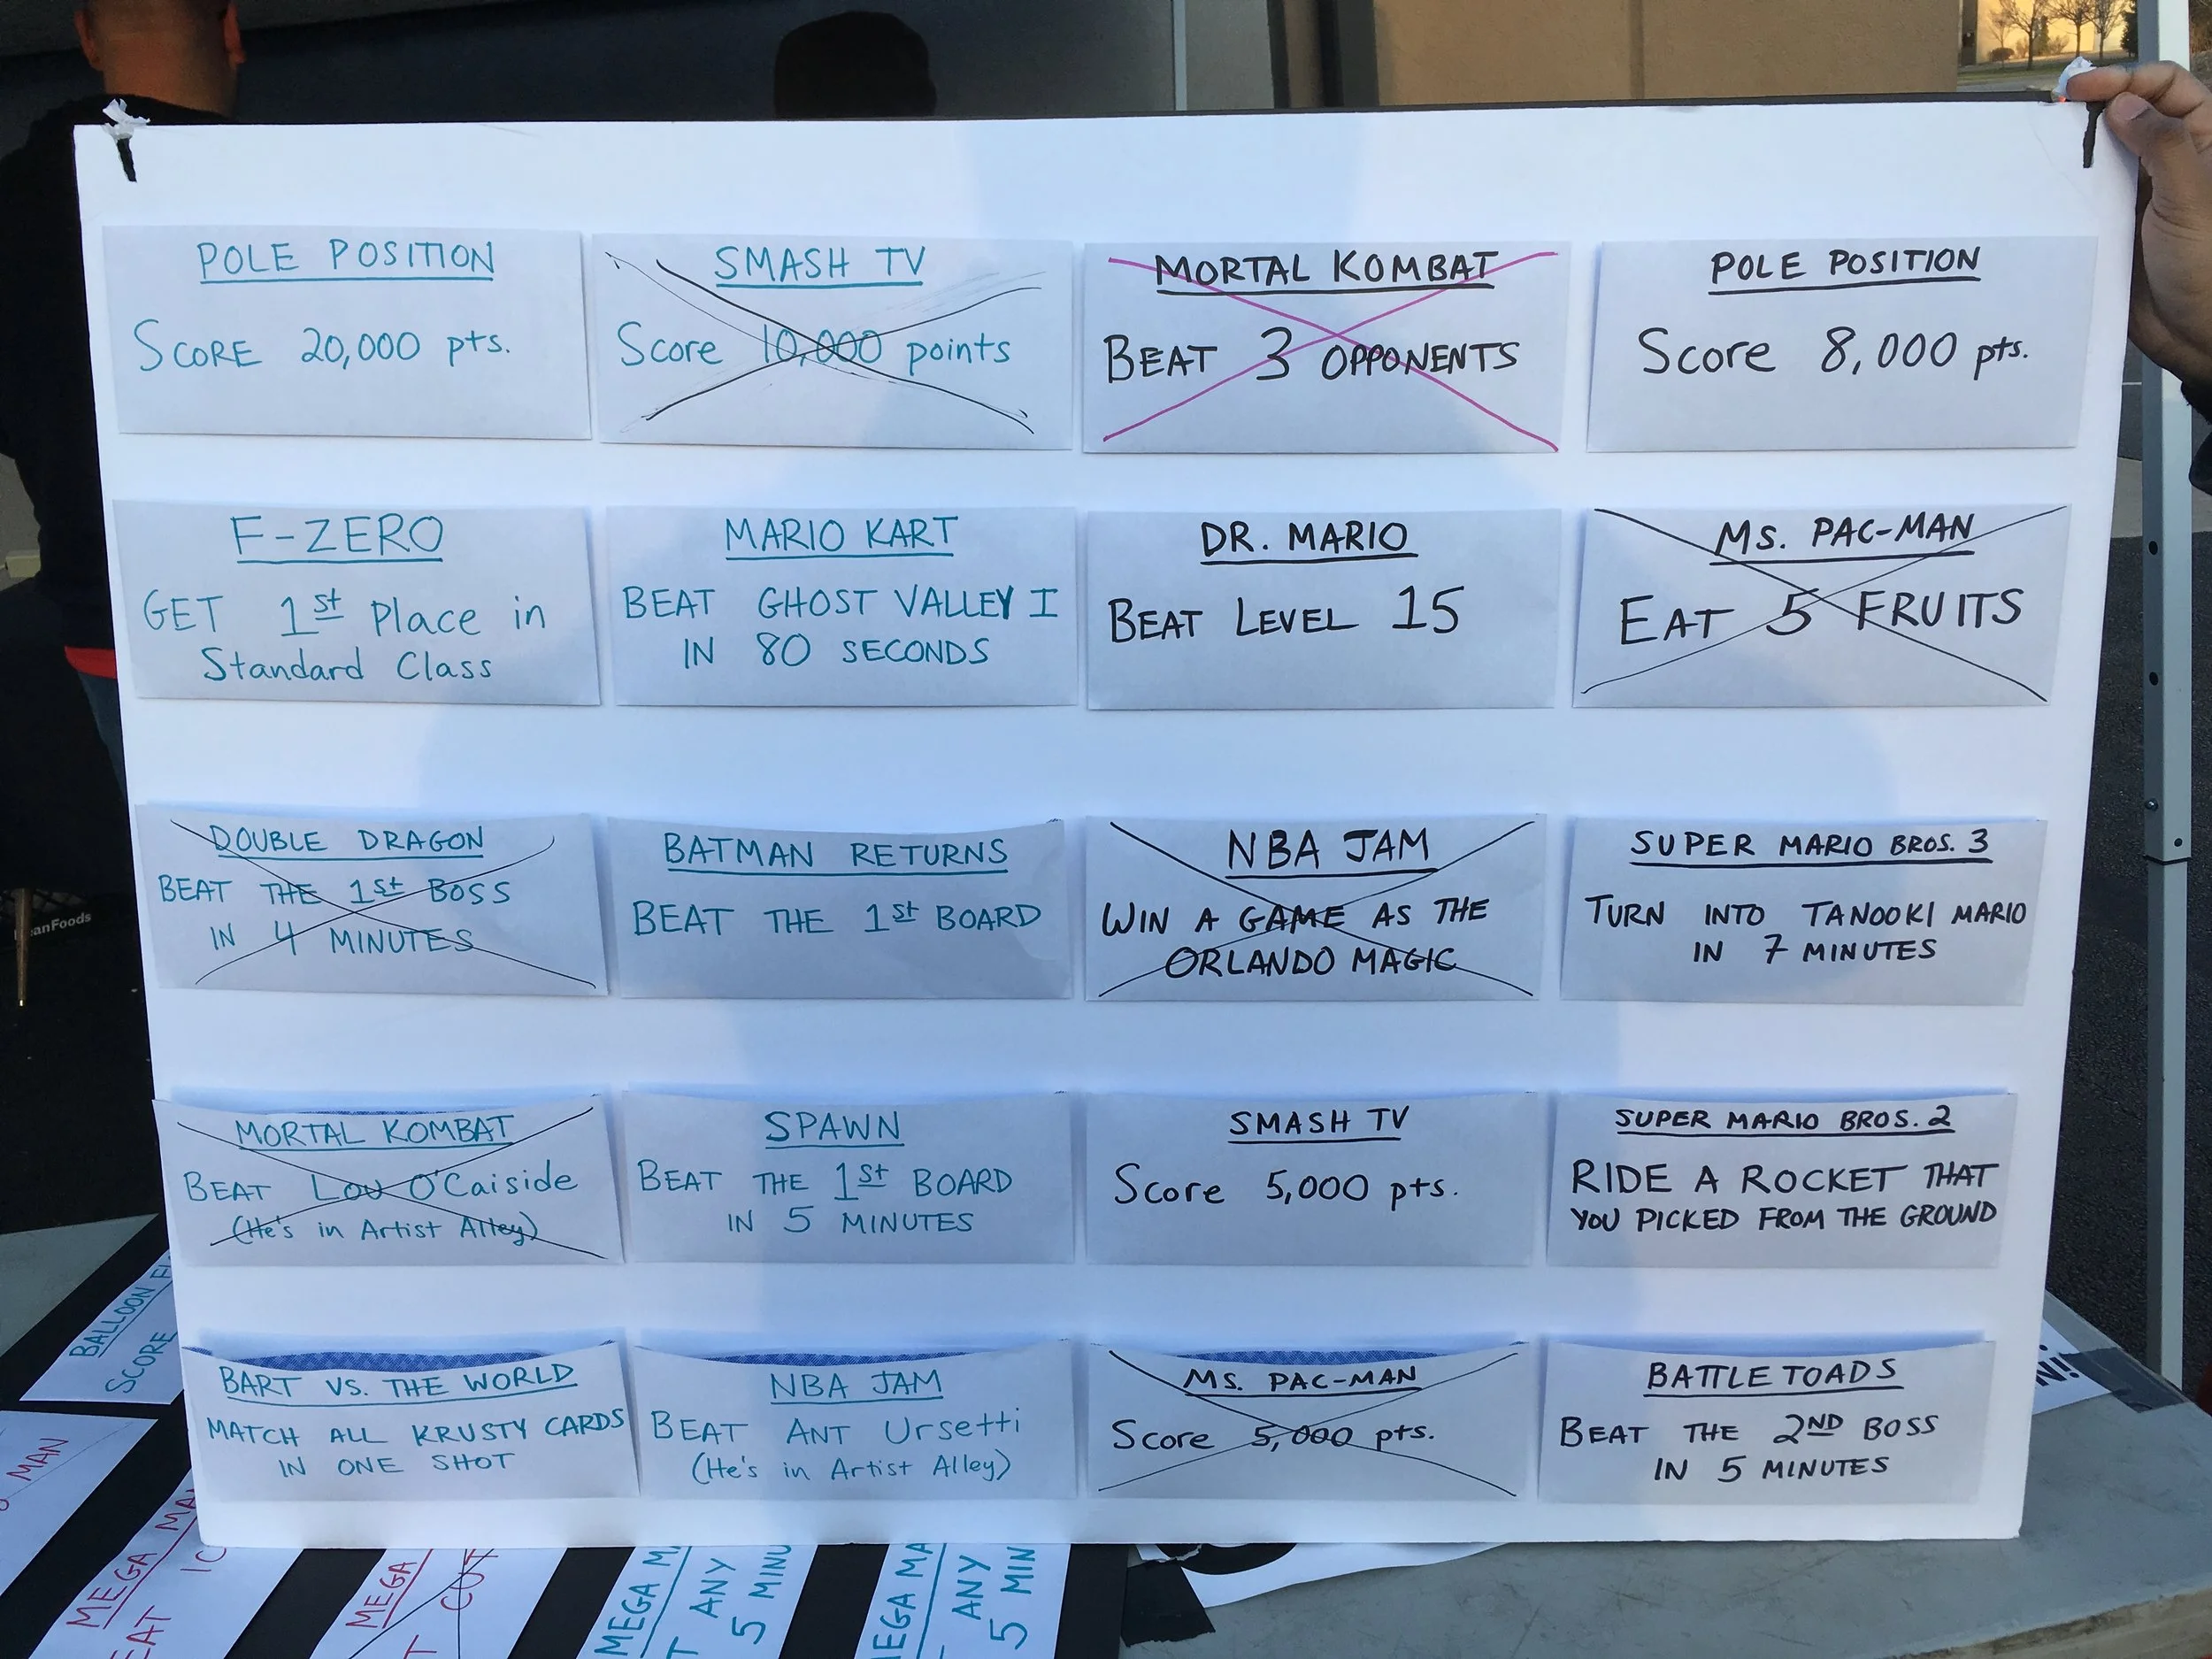 POLE POSITION
SCORE 20,000 pts.
SMASH TV
Score 10,000 points
MORTAL KOMBAT
BEAT 3 OPPONENTS
POLE POSITION
Score 8,000 pts.
F-ZERO
GET 1st Place in
Standard Class
MARIO KART
BEAT GHOST VALLEY I
IN 80 SECONDS
DR. MARIO
BEAT LEVEL 15
MS. PAC-MAN
EAT 5 FRUITS
DOUBLE DRAGON
BEAT THE 1st BOSS
IN 4 MINUTES
BATMAN RETURNS
BEAT THE 1st BOARD
NBA JAM
WIN A GAME AS THE
ORLANDO MAGIC
SUPER MARIO BROS. 3
TURN INTO TANOOKI MARIO
IN 7 MINUTES
MORTAL KOMBAT
BEAT LOU O'Caiside
(He's in Artist Alley)
SPAWN
BEAT THE 1st BOARD
IN 5 MINUTES
SMASH TV
Score 5,000 pts.
SUPER MARIO BROS. 2
RIDE A ROCKET THAT
YOU PICKED FROM THE GROUND
BART VS. THE WORLD
MATCH ALL KRUSTY CARDS
IN ONE SHOT
NBA JAM
BEAT ANT Ursetti
(He's in Artist Alley)
MS. PAC-MAN
Score 5,000 pts.
BATTLETOADS
BEAT THE 2ND BOSS
IN 5 MINUTES
BALLOON
SCORE
MAN
MEGA
MEGA
MEGA
ANY
5
ANY
5 MIN